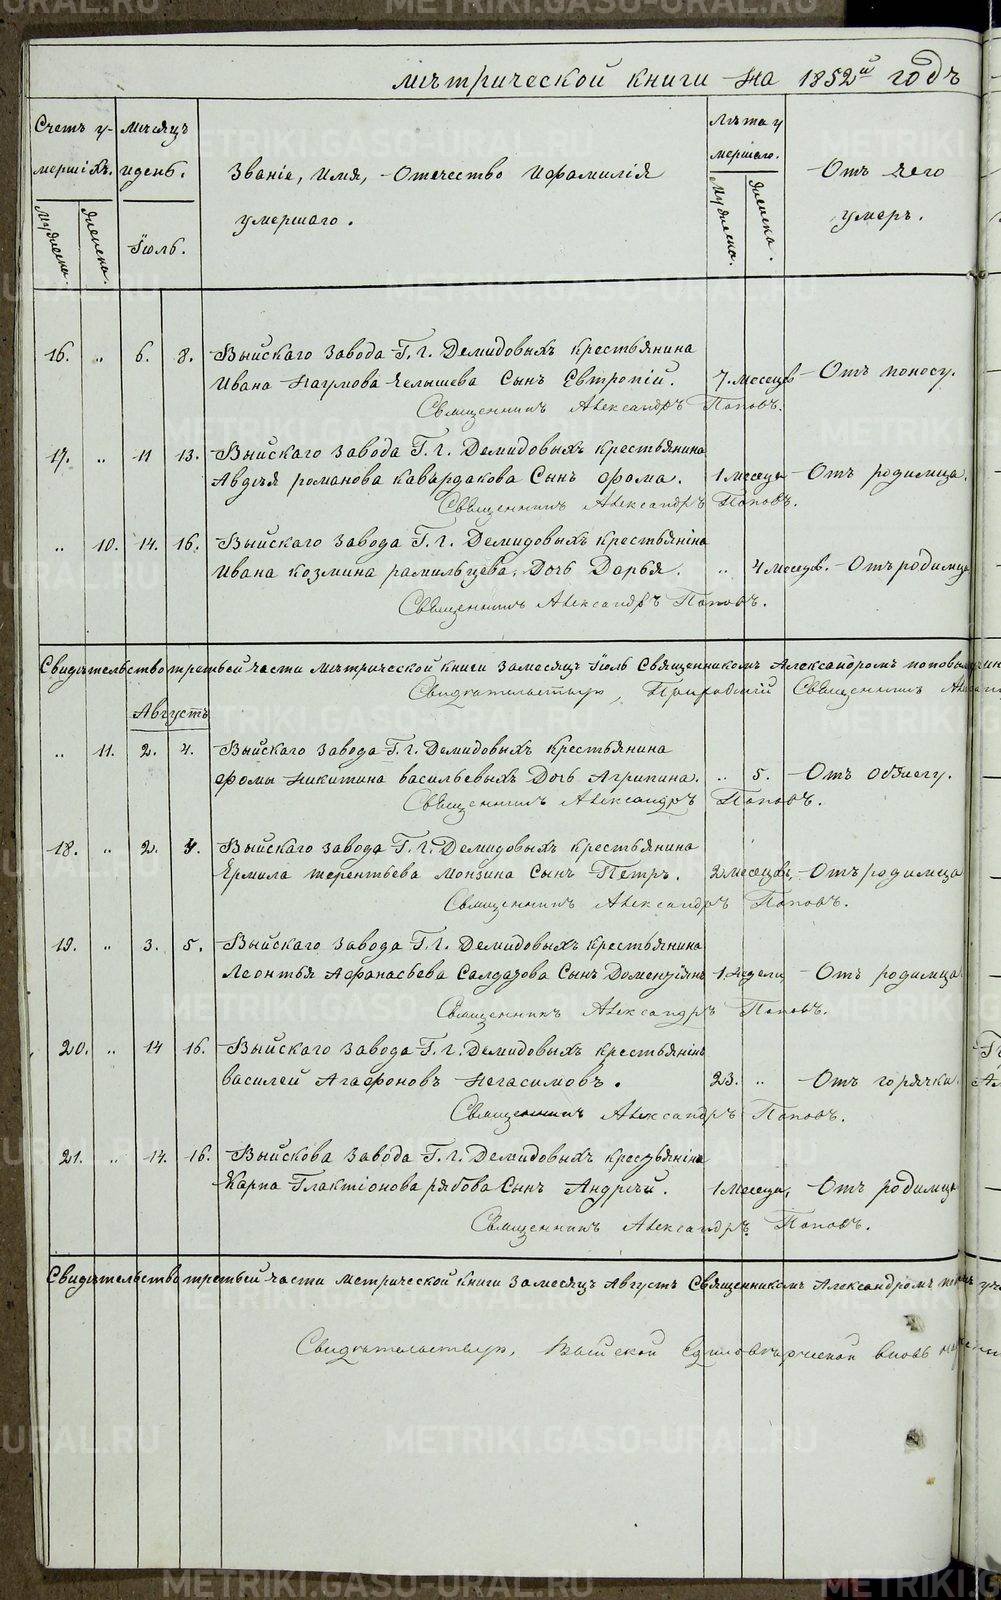 мѣтрической книги на 1852й годъ
Счетъ у-
мершихъ.
Мужеска.
Женска.
Мѣсяцъ
и день.
Іюль.
Званіе, Имя, Отечество и фамилія
умершаго.
Лѣта у
мершаго.
Мужеска.
Женска.
Отъ чего
умеръ.
16. „ 6. 8. Выйскаго завода Г. г. Демидовыхъ крестьянина
Ивана Наумова Челышева Сынъ Евтропій. 7. месецев Отъ поносу.
Священникъ Александръ Поповъ.
17. „ 11 13. Выйскаго завода Г. г. Демидовыхъ крестьянина
Авдѣя романова кавардакова Сынъ фома. 1 месеца Отъ родимца.
Священникъ Александръ Поповъ.
„ 10. 14. 16. Выйскаго завода Г. г. Демидовыхъ крестьяніна
Ивана козмина рамильцева, Дочь Дарья. „ 4 месецов. Отъ родимца
Священникъ Александръ Поповъ.
Свидѣтельство третьей части мѣтрической книги за месяцъ Іюль Священникомъ Александромъ поповым
Свидѣтельствую, Священникъ
Августъ
„ 11. 2. 4. Выйскаго завода Г. г. Демидовыхъ крестьянина
фомы никитина васильевыхъ Дочь Агрипина. „ 5. Отъ обжегу.
Священникъ Александръ Поповъ.
18. „ 2. 4. Выйскаго завода Г. г. Демидовыхъ крестьянина
Ермила терентьева Монзина Сынъ Петръ. 2 месецов, Отъ родимца
Священникъ Александръ Поповъ.
19. „ 3. 5. Выйскаго завода Г. г. Демидовыхъ крестьянина
Леонтья Афанасьева Салдатова Сынъ Доментіянъ 1. недели, Отъ родимца
Священникъ Александръ Поповъ.
20. „ 14 16. Выйскаго завода Г. г. Демидовыхъ крестьянінъ
василей Агафоновъ Негасимовъ. 23. „ Отъ горячки.
Священникъ Александръ Поповъ.
21. „ 14. 16. Выйскова завода Г. г. Демидовыхъ крестьяніна
Карпа Глактіонова рябова Сынъ Андрѣй. 1 месеца, Отъ родимца
Священникъ Александръ Поповъ.
Свидѣтельство третьей части метрической книги за месяцъ Августъ Священникомъ Александромъ
Свидѣтельствую, Выйской Единовѣрческой вновь
METRIKI.GASO-URAL.RU